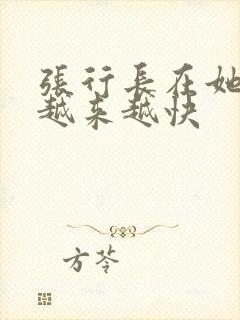 張行長在她
越来越快
方苓